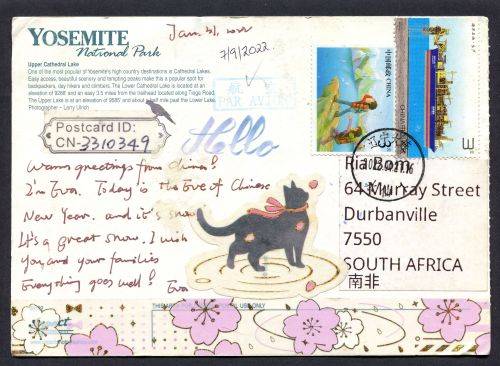 YOSEMITE
National Park
Upper Cathedral Lake
One of the most popular of Yosemite's high country destinations is Cathedral Lakes.
Easy access, beautiful scenery and tempting peaks make this a popular spot for
backpackers, day hikers and climbers. The Lower Cathedral Lake is located at an
elevation of 9288' and an easy 3.5 miles from the trailhead located along Tioga Road.
The Upper Lake is at an elevation of 9585' and about a half mile past the Lower Lake.
Photographer - Larry Ulrich
Jan. 31,
7/9/2022
航
PAR AVION
中国邮政 CHINA
Postcard ID:
CN-3310349
Hello
Warm greetings from China!
I'm Eva. Today is the Eve of Chinese
New Year. and it's snow
It's a great snow. I wish
You and your families
Everything goes well! Eva
Ria Bom
64 Murray Street
Durbanville
7550
SOUTH AFRICA
南非
USE ONLY